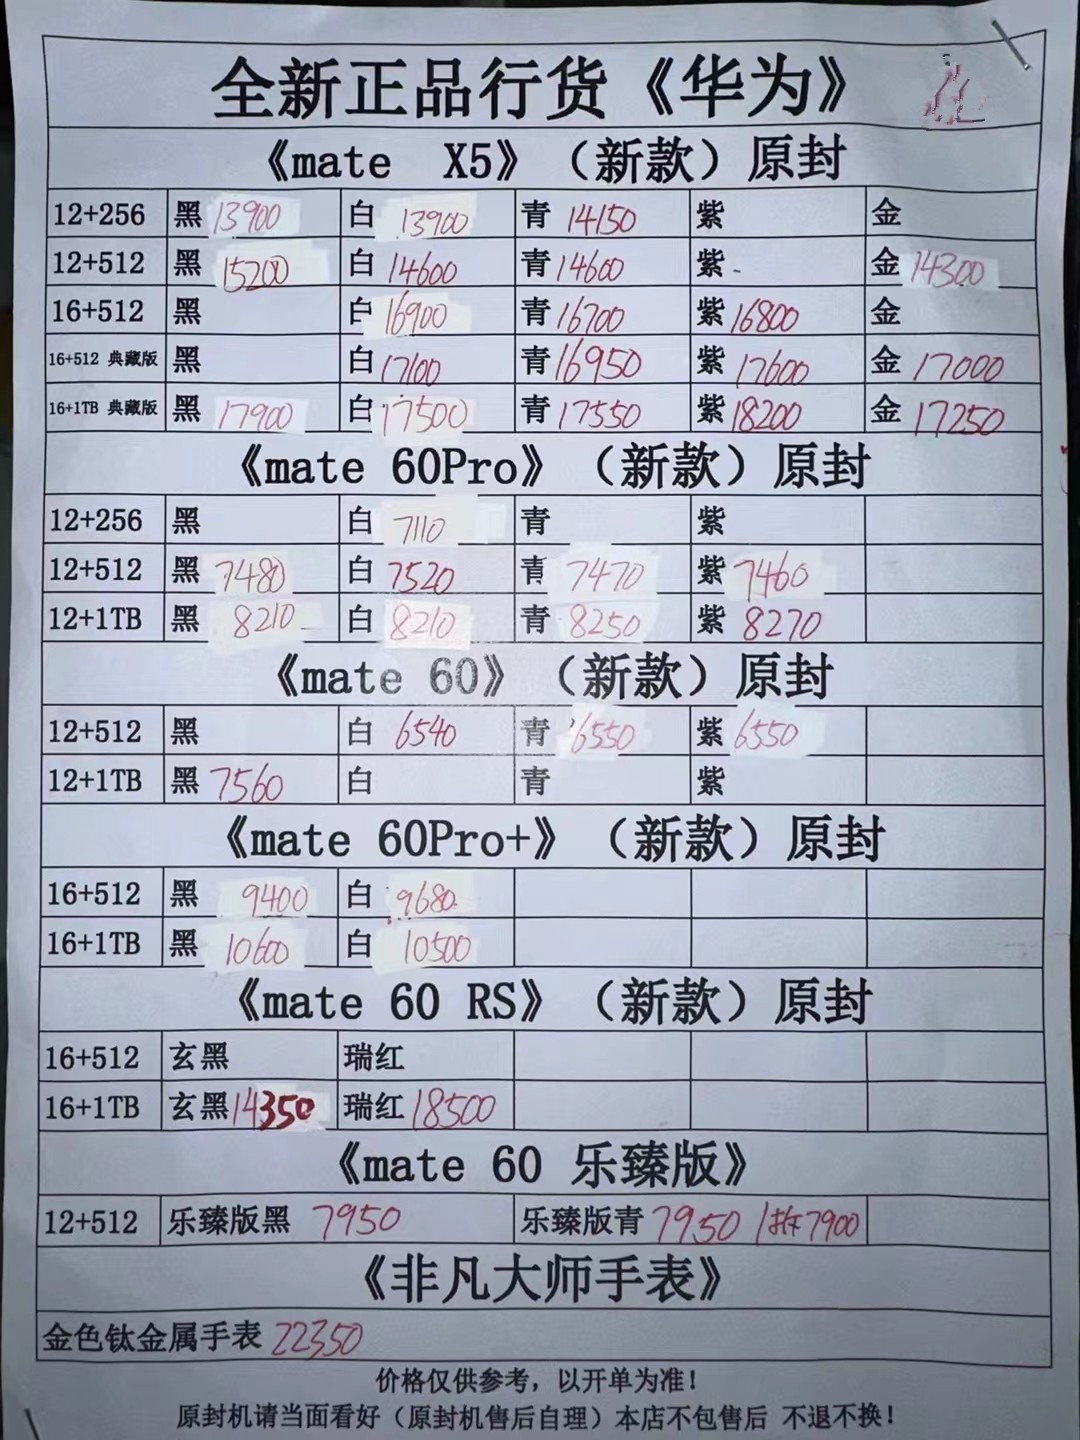 全新正品行货《华为》
《mate X5》（新款）原封
12+256 黑 13900 白 13900 青 14150 紫 金
12+512 黑 15200 白 14600 青 14600 紫 - 金 14300
16+512 黑 白 16900 青 16700 紫 16800 金
16+512 典藏版 黑 白 17100 青 16950 紫 17600 金 17000
16+1TB 典藏版 黑 17900 白 17500 青 17550 紫 18200 金 17250
《mate 60Pro》（新款）原封
12+256 黑 白 7110 青 紫
12+512 黑 7480 白 7520 青 7470 紫 7460
12+1TB 黑 8210 白 8210 青 8250 紫 8270
《mate 60》（新款）原封
12+512 黑 白 6540 青 6550 紫 6550
12+1TB 黑 7560 白 青 紫
《mate 60Pro+》（新款）原封
16+512 黑 9400 白 9680
16+1TB 黑 10600 白 10500
《mate 60 RS》（新款）原封
16+512 玄黑 瑞红
16+1TB 玄黑 14350 瑞红 18500
《mate 60 乐臻版》
12+512 乐臻版黑 7950 乐臻版青 7950 /拆7900
《非凡大师手表》
金色钛金属手表 22350
价格仅供参考，以开单为准！
原封机请当面看好（原封机售后自理）本店不包售后 不退不换！